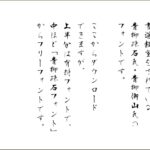 書道教室を〇〇ている
青柳疎石氏・青柳衡山氏の
フォントです。
ここからダウンロード
できますが、
上半分は有料フォントで、
中ほど「青柳疎石フォント」
からフリーフォントです。